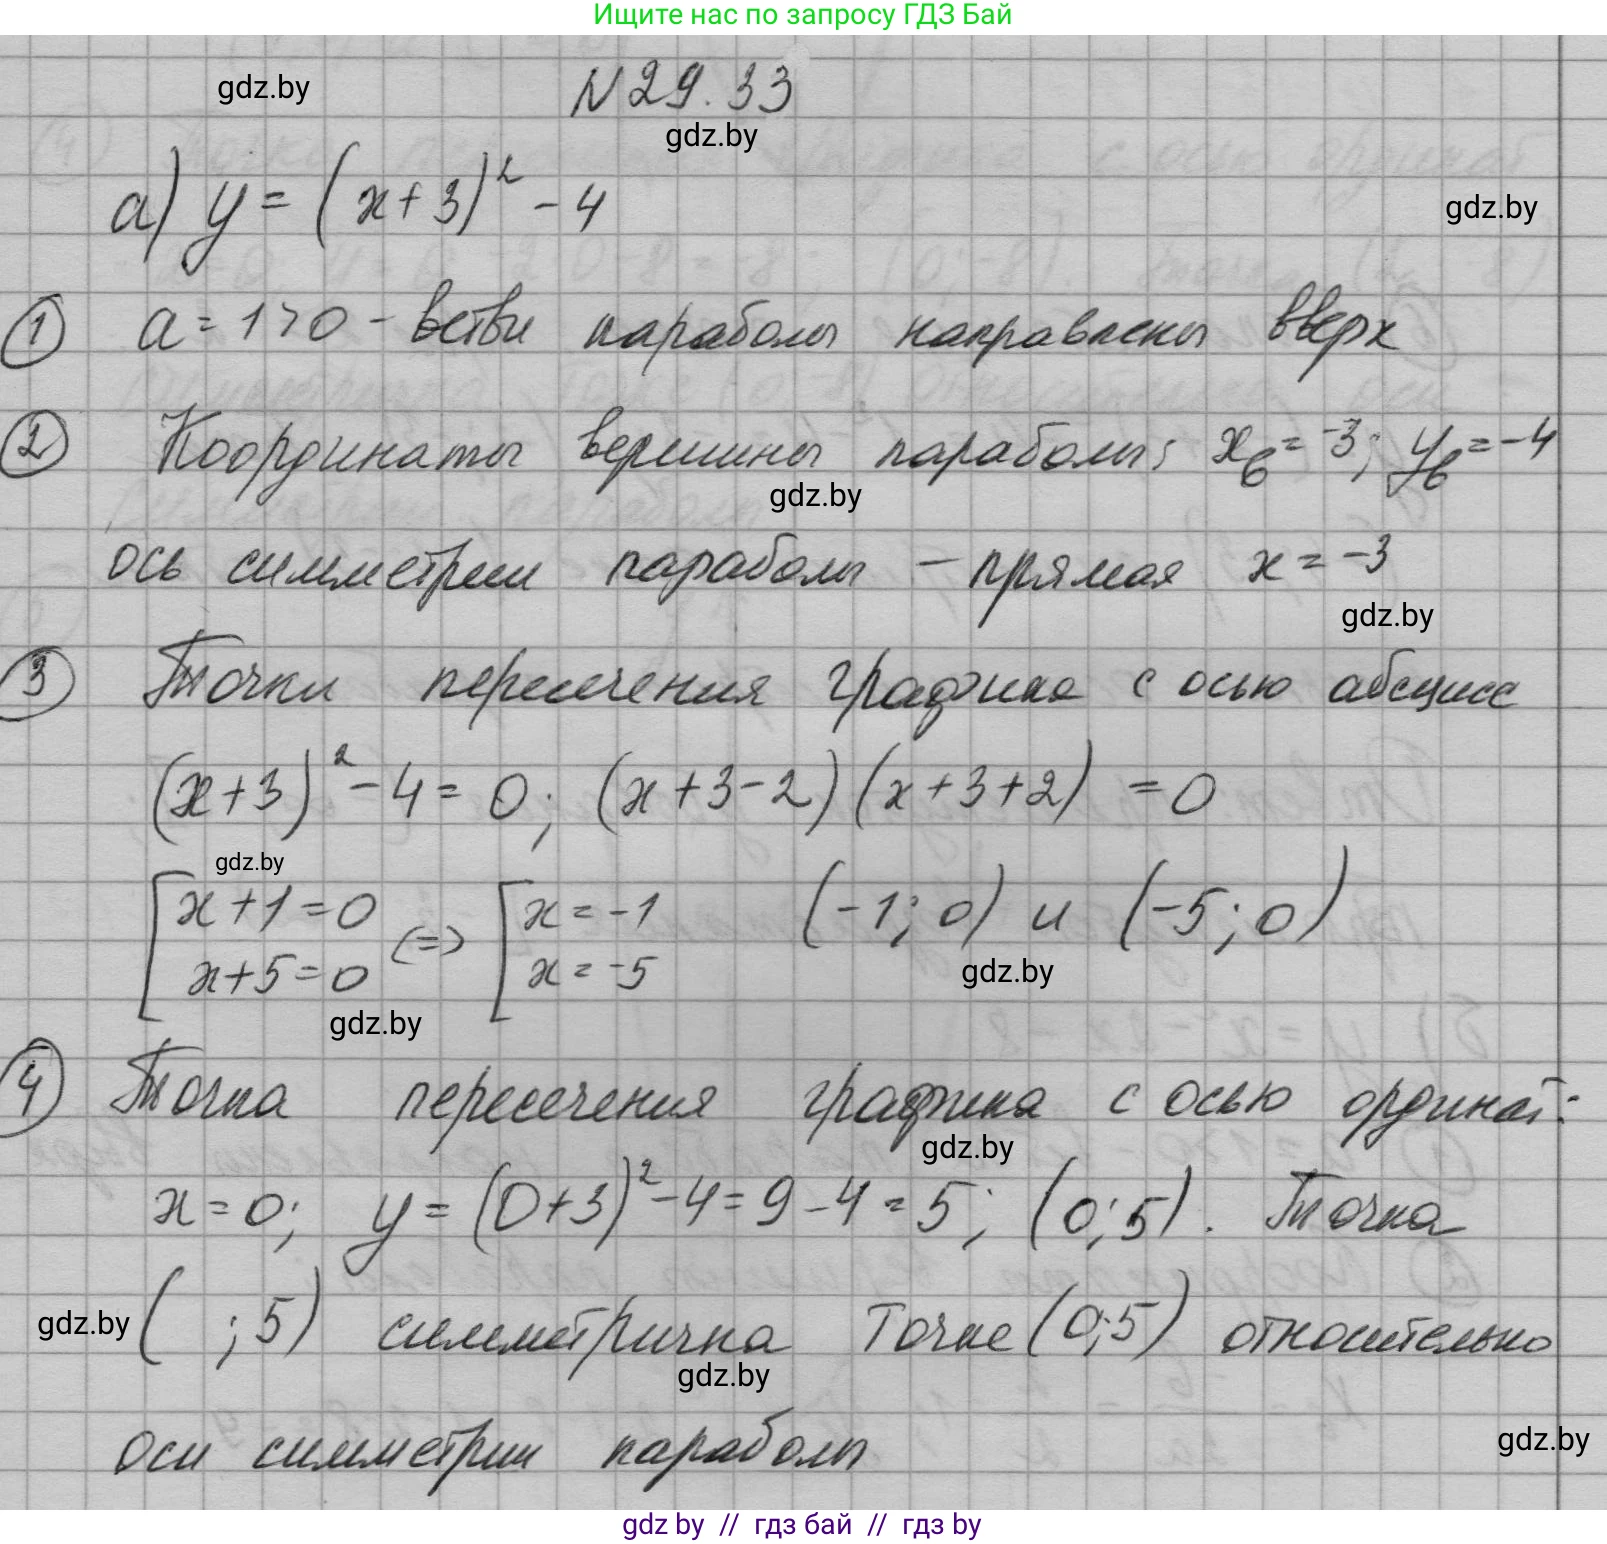 Ищите нас по запросу ГДЗ Бай
gdz.by
N 29.33
gdz.by
а) y = (x+3)² - 4
gdz.by
① a = 1 > 0 - ветви параболы направлены вверх
② Координаты вершины параболы: x_в = -3; y_в = -4
gdz.by
ось симметрии параболы - прямая x = -3
gdz.by
③ Точки пересечения графика с осью абсцисс
(x+3)² - 4 = 0; (x+3-2)(x+3+2) = 0
gdz.by
[x+1=0 <=> [x=-1 (-1; 0) и (-5; 0)
x+5=0 x=-5
gdz.by
gdz.by
④ Точка пересечения графика с осью ординат:
gdz.by
x = 0; y = (0+3)² - 4 = 9 - 4 = 5; (0; 5). Точка
gdz.by ( ; 5) симметрична точке (0; 5) относительно
gdz.by
оси симметрии параболы
gdz.by
gdz by // гдз бай // гдз by